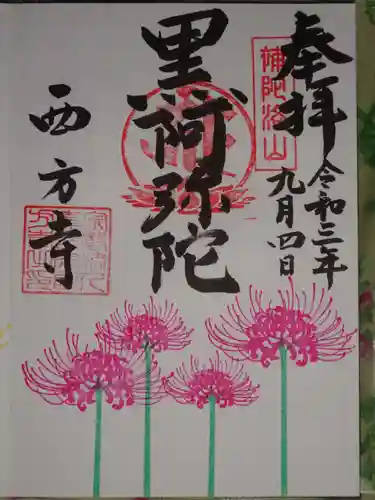 奉拝
令和三年
九月四日
補陀洛山
黒阿弥陀
西方寺